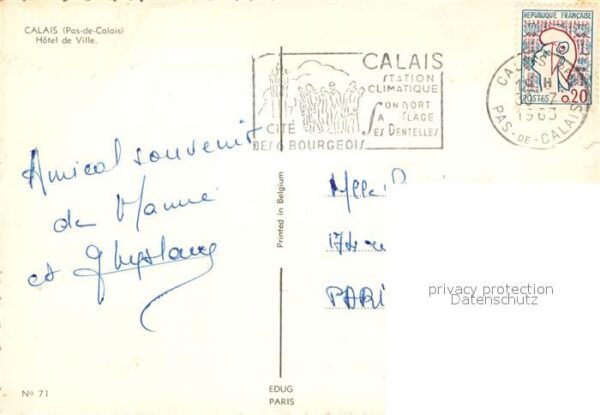 CALAIS (Pas-de-Calais)
Hôtel de Ville.
REPUBLIQUE FRANÇAISE
POSTES 0,20
CALAIS
STATION
CLIMATIQUE
SON PORT
SA PLAGE
SES DENTELLES
CITÉ
DES 6 BOURGEOIS
1963
PAS-DE-CALAIS
Amical souvenir
de
et Ghyslaine
Printed in Belgium
Mlle
174
PARI
privacy protection
Datenschutz
No 71
EDUG
PARIS